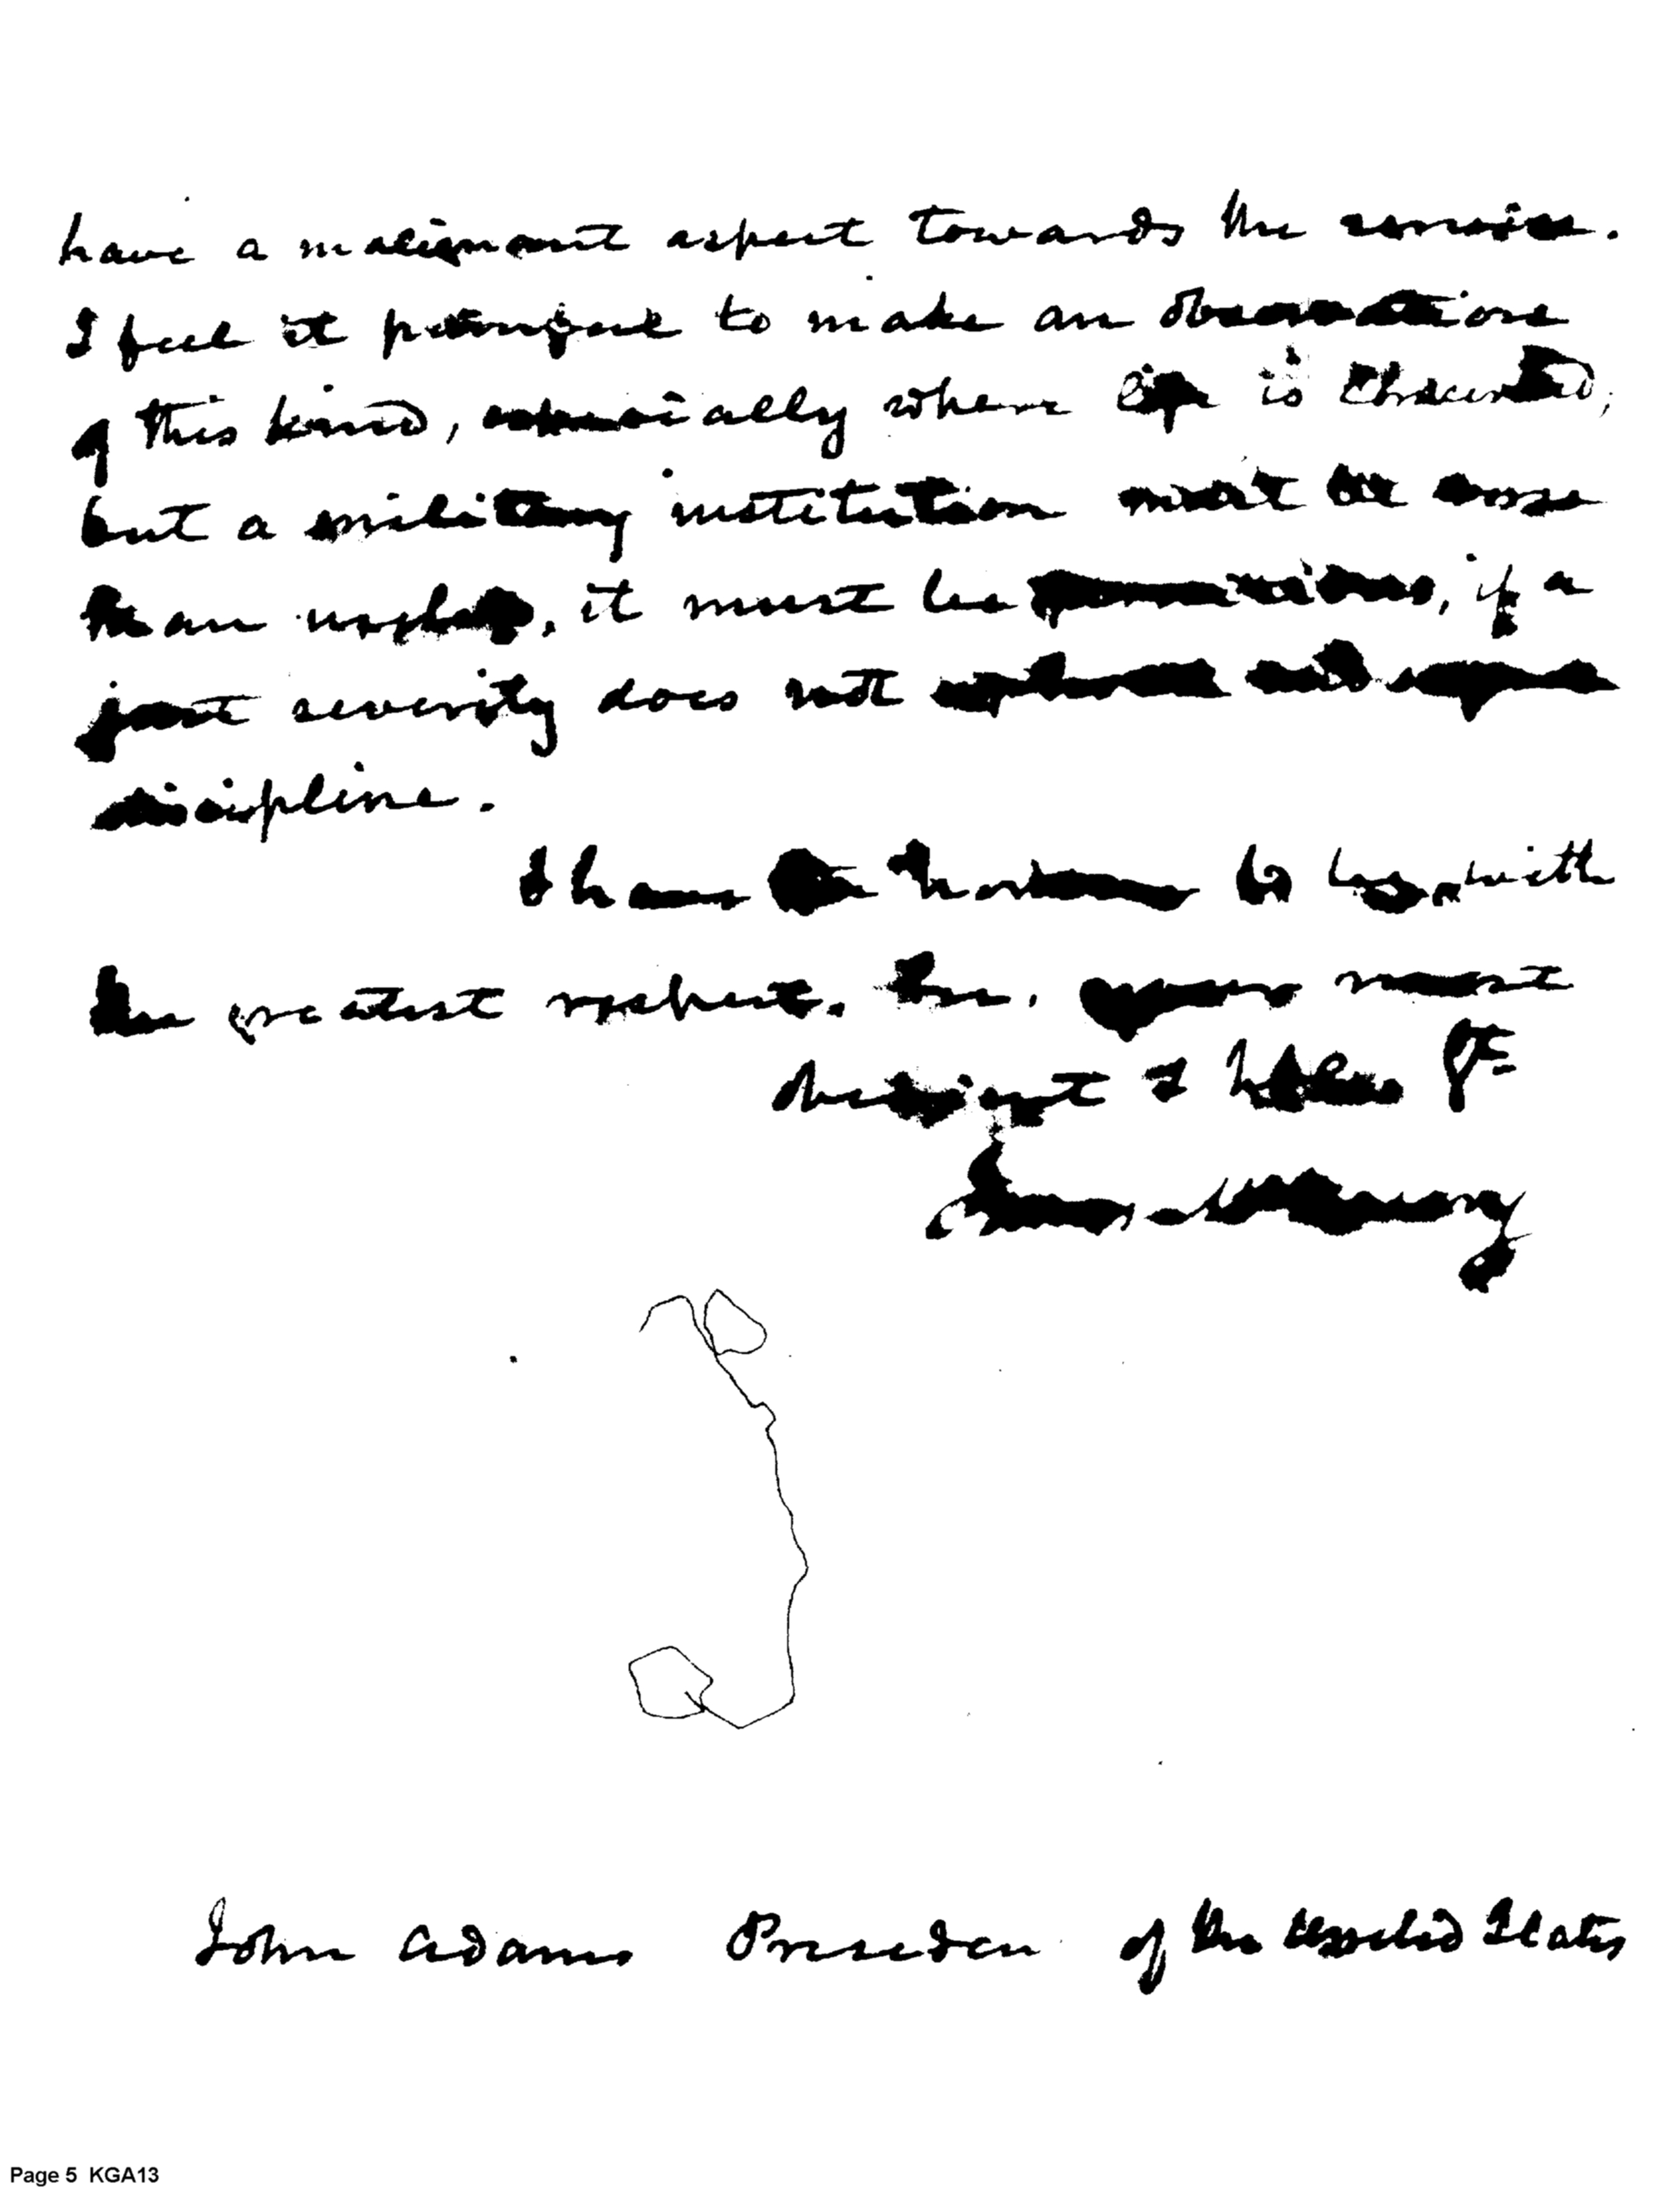 have a malignant aspect towards the service.
I feel it painful to make an observation
of this kind, especially where life is concerned,
but a military institution must be worse
than useless, it must be pernicious, if a
just severity does not uphold and
discipline.
I have the honor to be, with
the greatest respect, Sir, your most
obedient &
James McHenry
John Adams President of the United States
Page 5 KGA13